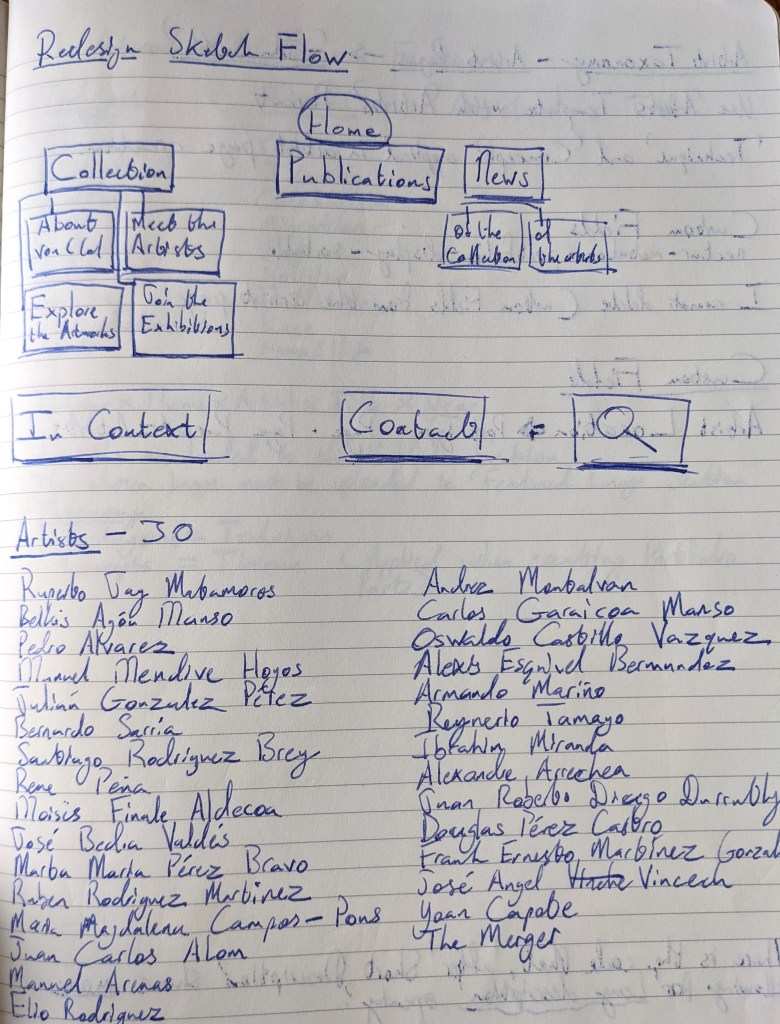 Redesign Sketch Flow
Home
Collection
Publications
News
About
Meet the
Artists
of the
Collection
of
the artists
Explore
the Artworks
Join the
Exhibitions
In Context
Contact
Artists - 30
Ruperto Jay Matamoros
Belkis Ayón Manso
Pedro Alvarez
Manuel Mendive Hoyos
Julián Gonzalez Pérez
Bernardo Sarria
Santiago Rodriguez Brey
Rene Peña
Moisés Finale Aldecoa
José Bedia Valdés
Marta María Pérez Bravo
Ruben Rodriguez Martinez
Maria Magdalena Campos-Pons
Juan Carlos Alom
Manuel Arenas
Elio Rodriguez
Andrez Montalvan
Carlos Garaicoa Manso
Oswaldo Castillo Vazquez
Alexis Esquivel Bermundez
Armando Mariño
Reynerio Tamayo
Ibrahim Miranda
Alexandre Arrechea
Juan Roberto Diago
Douglas Pérez Castro
Frank Ernesto Martinez Gonzal
José Angel Vincech
Yoan Capote
The Merger